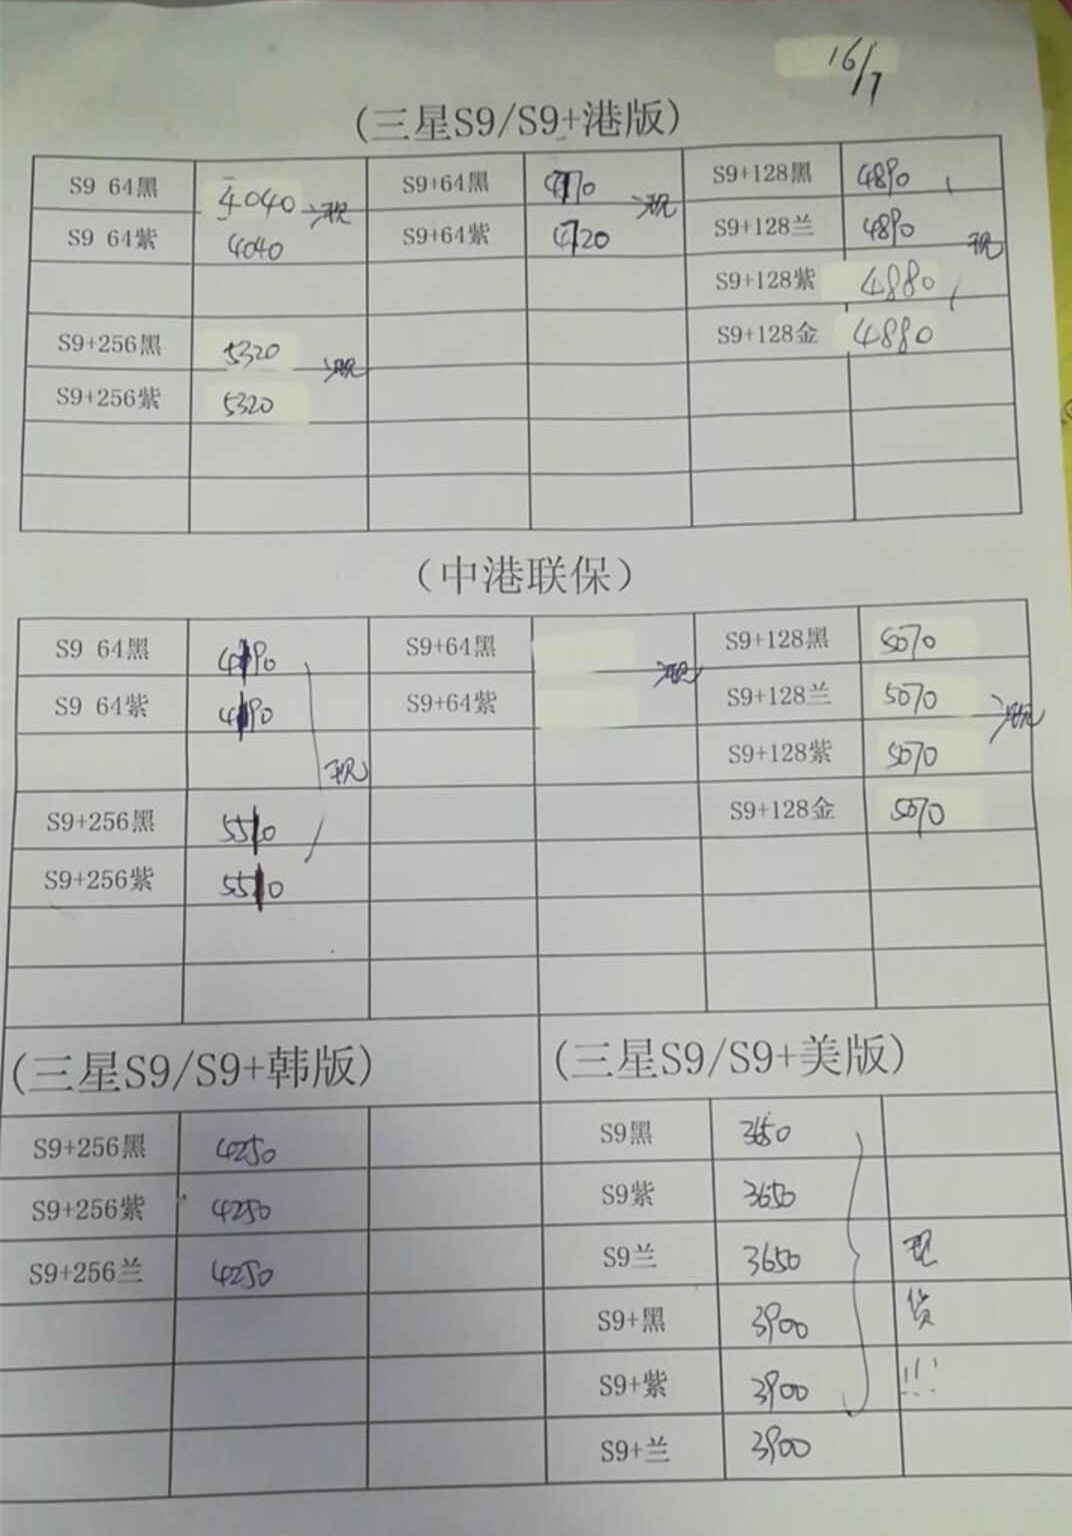 16/7
(三星S9/S9+港版)
S9 64黑 4040 现 S9+64黑 S9+128黑 4890
S9 64紫 4040 S9+64紫 4720 现 S9+128兰 4890 现
S9+128紫 4880
S9+256黑 5320 现 S9+128金 4880
S9+256紫 5320
(中港联保)
S9 64黑 S9+64黑 现 S9+128黑 5070
S9 64紫 S9+64紫 S9+128兰 5070 现
现 S9+128紫 5070
S9+256黑 5510 S9+128金 5070
S9+256紫 5510
(三星S9/S9+韩版) (三星S9/S9+美版)
S9+256黑 4250 S9黑 3650
S9+256紫 4250 S9紫 3650
S9+256兰 4250 S9兰 3650 现
S9+黑 3900 货
S9+紫 3900 !!!
S9+兰 3900